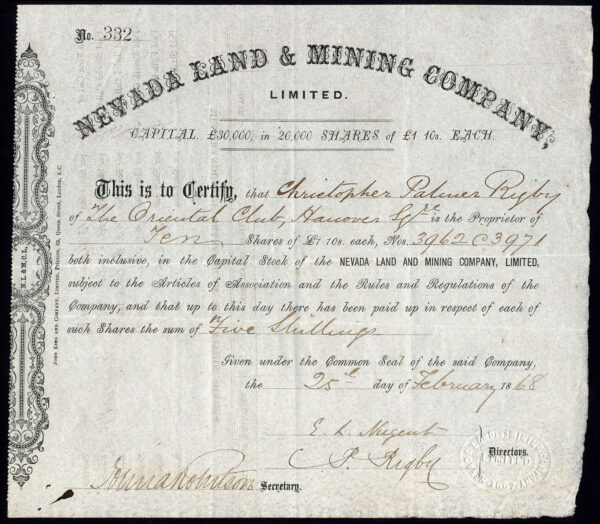 No. 332
NEVADA LAND & MINING COMPANY,
LIMITED.
CAPITAL, £30,000, in 20,000 SHARES of £1 10s. EACH.
This is to Certify, that Christopher Palmer Rigby
of The Oriental Club, Hanover Sqre is the Proprietor of
Ten Shares of £1 10s. each, Nos. 3962 @ 3971
both inclusive, in the Capital Stock of the NEVADA LAND AND MINING COMPANY, LIMITED,
subject to the Articles of Association and the Rules and Regulations of the
Company, and that up to this day there has been paid up in respect of each of
such Shares the sum of Five Shillings
Given under the Common Seal of the said Company,
the 25th day of February 1868
E. L. Nugent
P. Rigby
Directors.
Secretary.
N.L. & M.C.L.